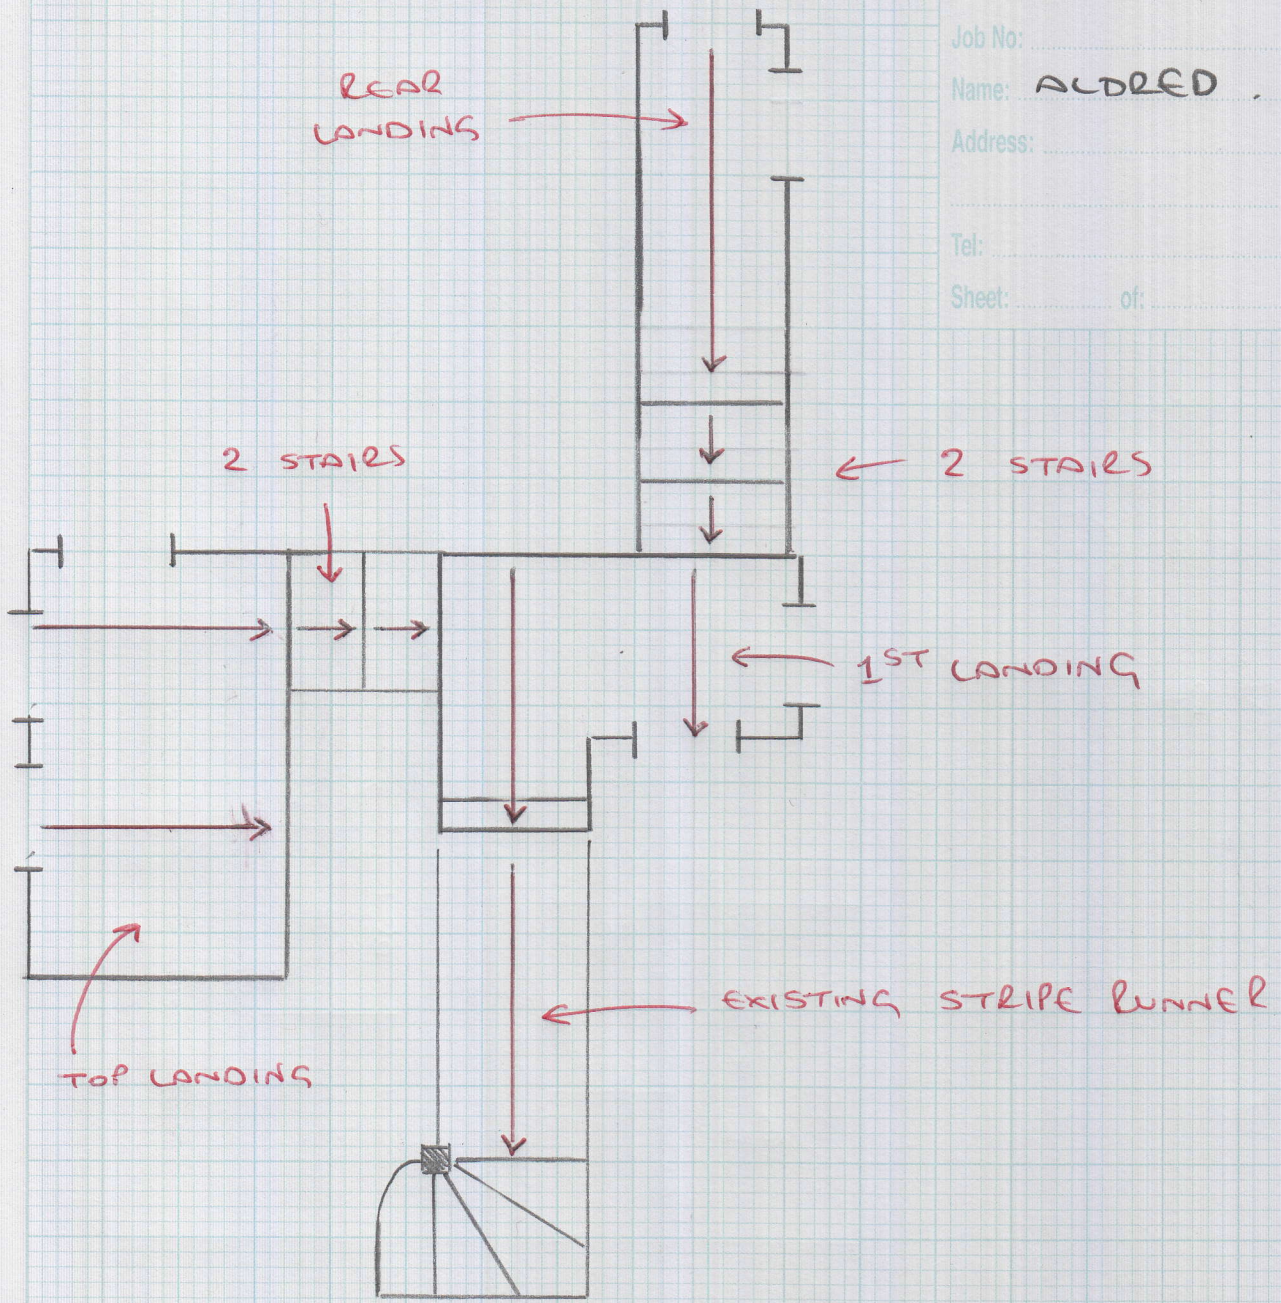 Job No:
Name: ALDRED.
Address:
Tel:
Sheet: of:
REAR
LANDING
2 STAIRS
2 STAIRS
1ST LANDING
EXISTING STRIPE RUNNER
TOP LANDING